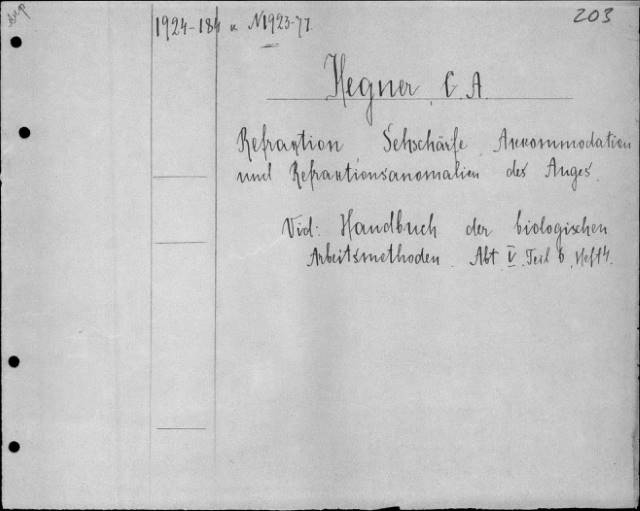 203
1924-184 u N1923-77
Hegner, C. A.
Refraktion Sehschärfe Akkommodation
und Refraktionsanomalien des Auges.
Vid: Handbuch der biologischen
Arbeitsmethoden. Abt V. Teil 6, Heft 4.